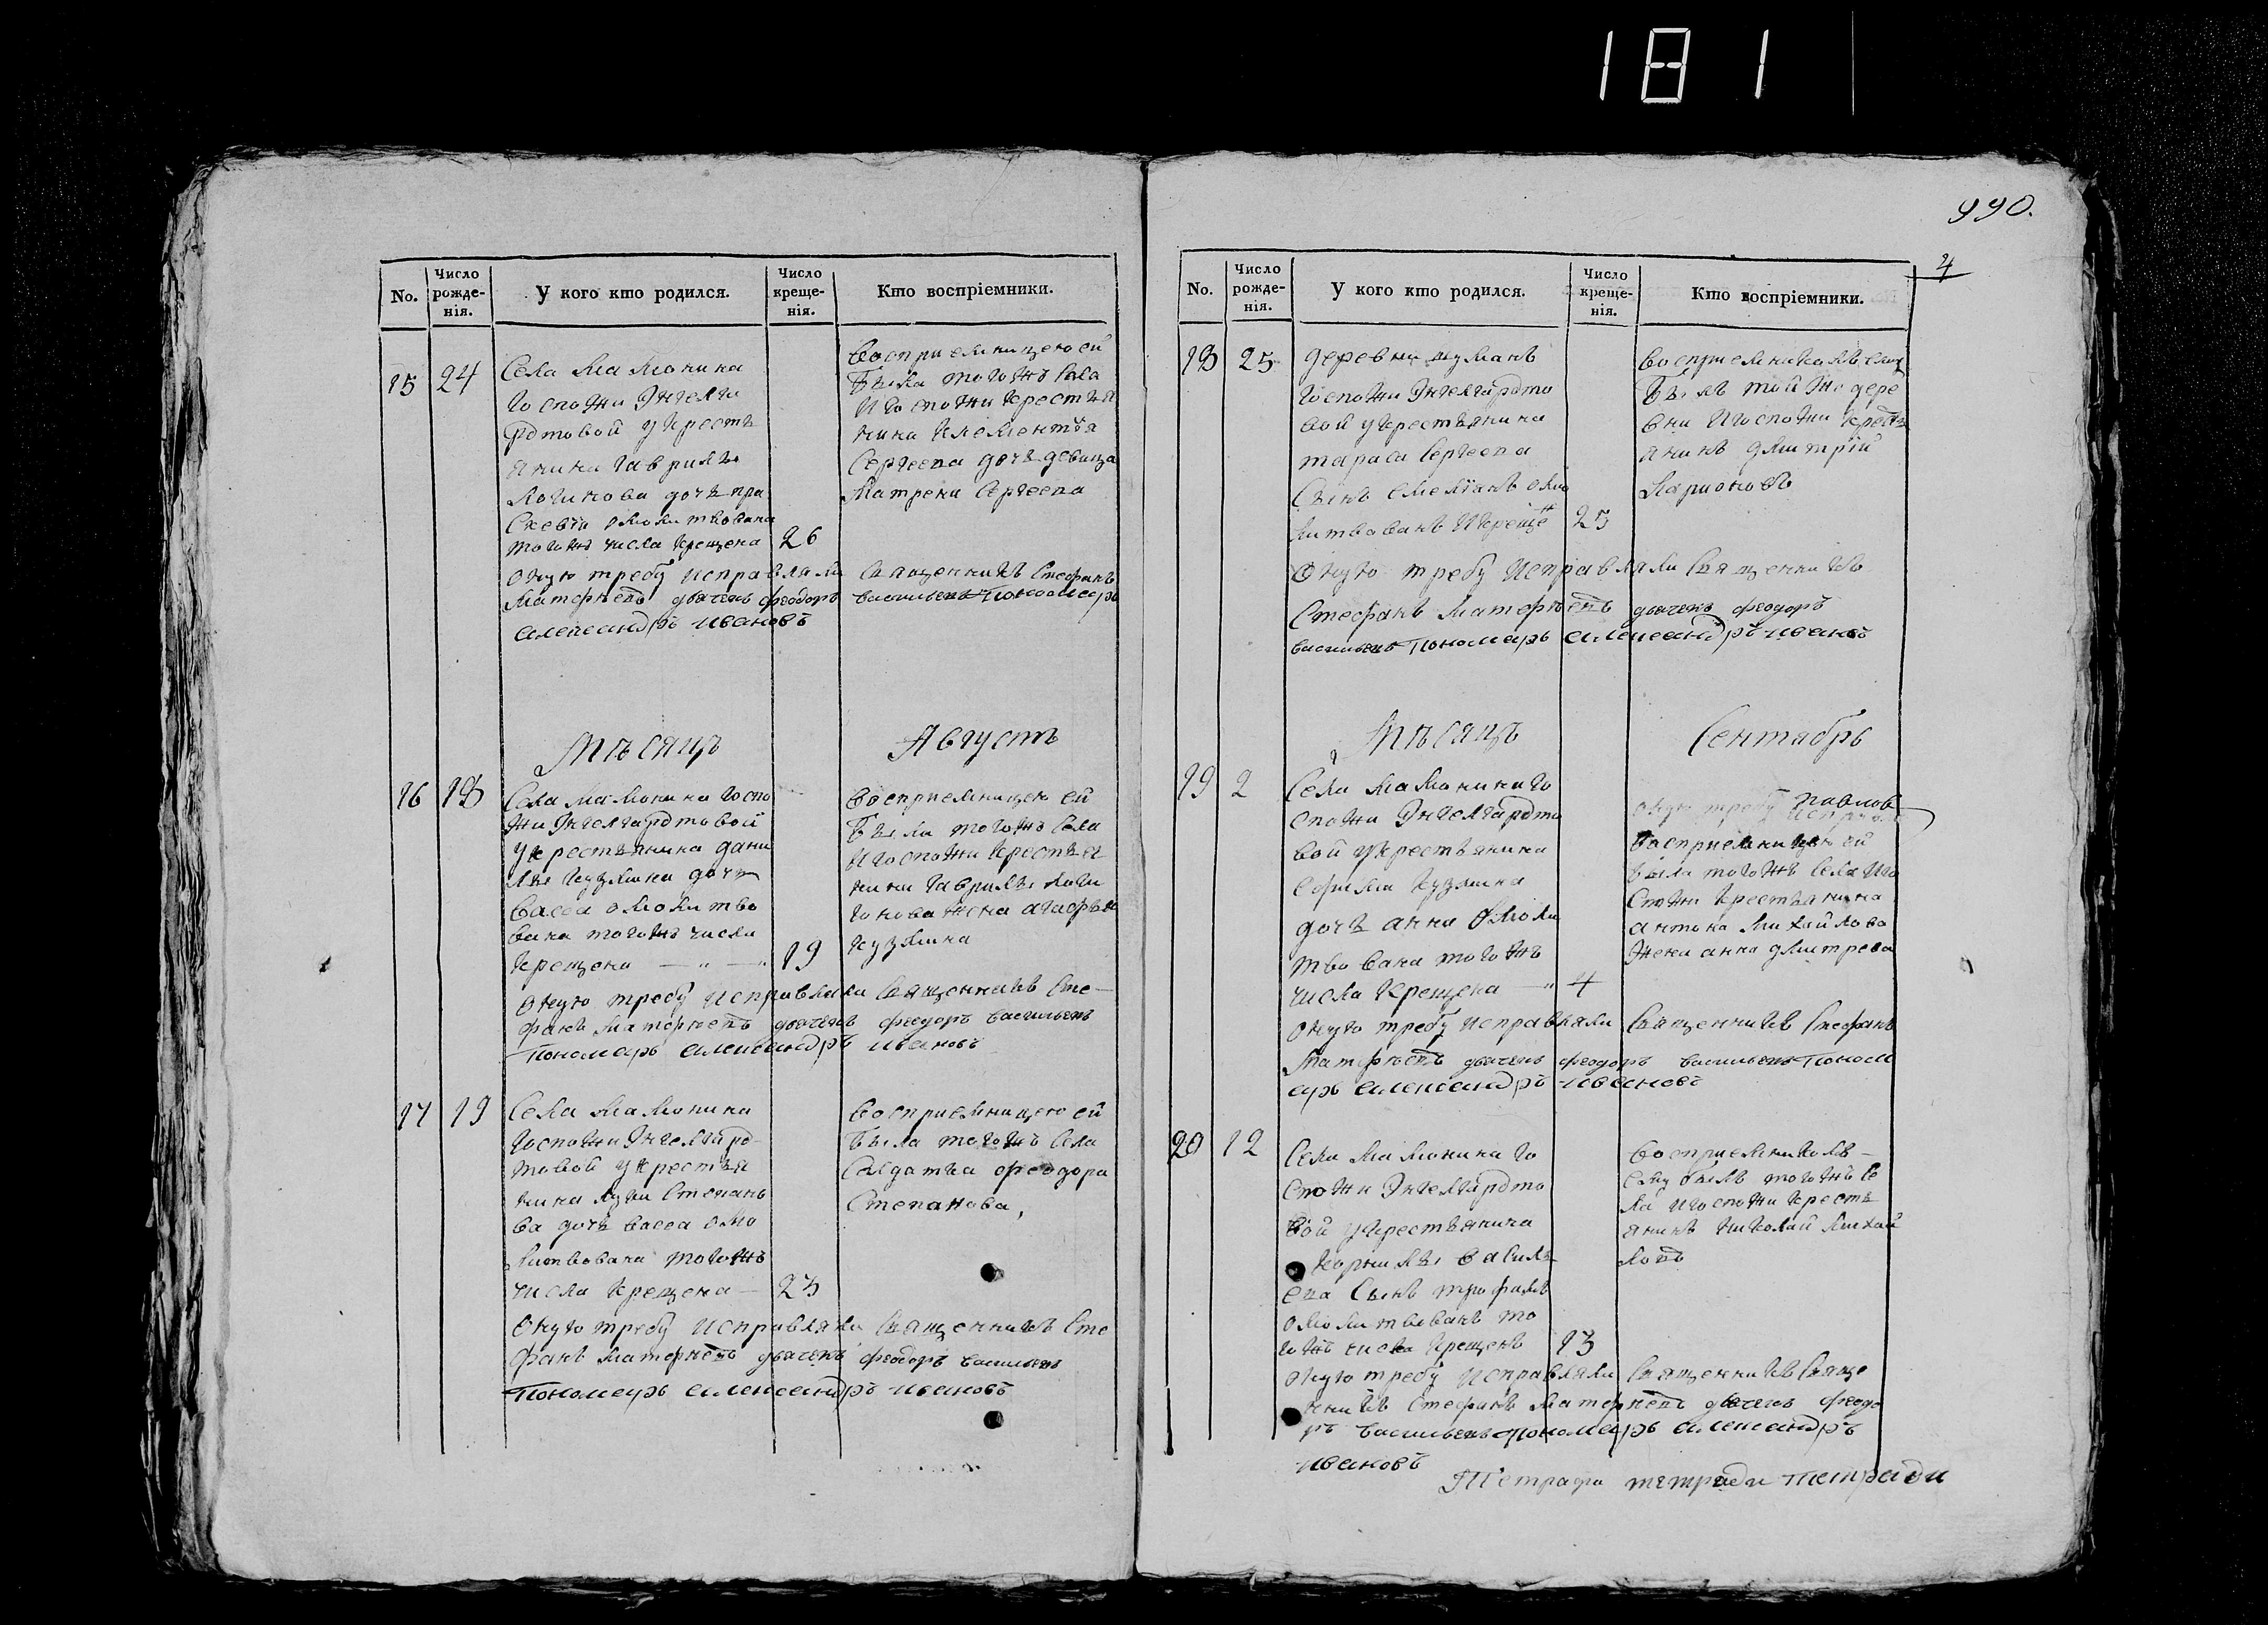 181
No.
Число рожде-нія.
У кого кто родился.
Число креще-нія.
Кто воспріемники.
15 24 Села Мамонина
госпожи Энгелга
рдтовой укрестъ
янина гаврилы
логинова дочь пра
сковья омолитвована
тогожъ числа крещена 26
Восприемницею ей
была тогожъ села
игоспожи крестья
нина климентья
Сергеева дочь девица
матрена Сергеева
оную требу исправляли священникъ Стефанъ
Матфѣевъ дьячекъ феодоръ васильевъ пономарь
александръ ивановъ
Мѣсяцъ Августъ
16 18 Села мамонина госпо
жи Энгелгардтовой
укрестьянина дани
лы кузмина дочь
васса омолитво
вана тогожъ числа
крещена — „ — 19
восприемницею ей
была тогожъ села
игоспожи крестья
нина гаврилы логи
нова жена агафья
кузмина
оную требу исправляли священникъ Сте-
фанъ матфѣевъ дьячекъ феодоръ васильевъ
пономарь александръ ивановъ
17 19 Села мамонина
госпожи Энгелгард
товой укрестья
нина луки Степано
ва дочь васса омо
литвована тогожъ
числа крещена — 23
восприемницею ей
была тогожъ села
Салдатка феодора
Степанова,
оную требу исправляли священникъ Сте
фанъ матфѣевъ дьячекъ феодоръ васильевъ
пономарь александръ ивановъ
990.
4
No.
Число рожде-нія.
У кого кто родился.
Число креще-нія.
Кто воспріемники.
18 25 деревни шуманъ
госпожи Энгелгардто
вой укрестьянина
тараса Сергеева
Сынъ емельянъ омо
литвованъ икрещен 25
восприемникомъ ему
былъ тойже дере
вни игоспожи кресть
янинъ дмитрій
Ларионовъ
оную требу исправляли священникъ
Стефанъ матфѣевъ дьячекъ феодоръ
васильевъ пономарь александръ ивановъ
Мѣсяцъ Сентябрь
19 2 Села мамонина го
спожи Энгелгардто
вой укрестьянина
ефима кузмина
дочь анна омоли
твована тогожъ
числа крещена — „ 4
оную требу
восприемницею ей
была тогожъ села иго
спожи крестьянина
антона михайлова
жена анна дмитрева
оную требу исправляли священникъ Стефанъ
Матфѣевъ дьячекъ феодоръ васильевъ поном
арь александръ ивановъ
20 12 Села мамонина го
спожи Энгелгардто
вой укрестьянина
корнилы василь
ева Сынъ трофимъ
омолитвованъ то
гожъ числа крещенъ 13
восприемникомъ —
ему былъ тогожъ се
ла игоспожи кресть
янинъ николай михай
ловъ
оную требу исправляли священникъ свяще
нникъ Стефанъ матфѣевъ дьячекъ феодо
ръ васильевъ пономарь александръ
ивановъ
тетради тетради